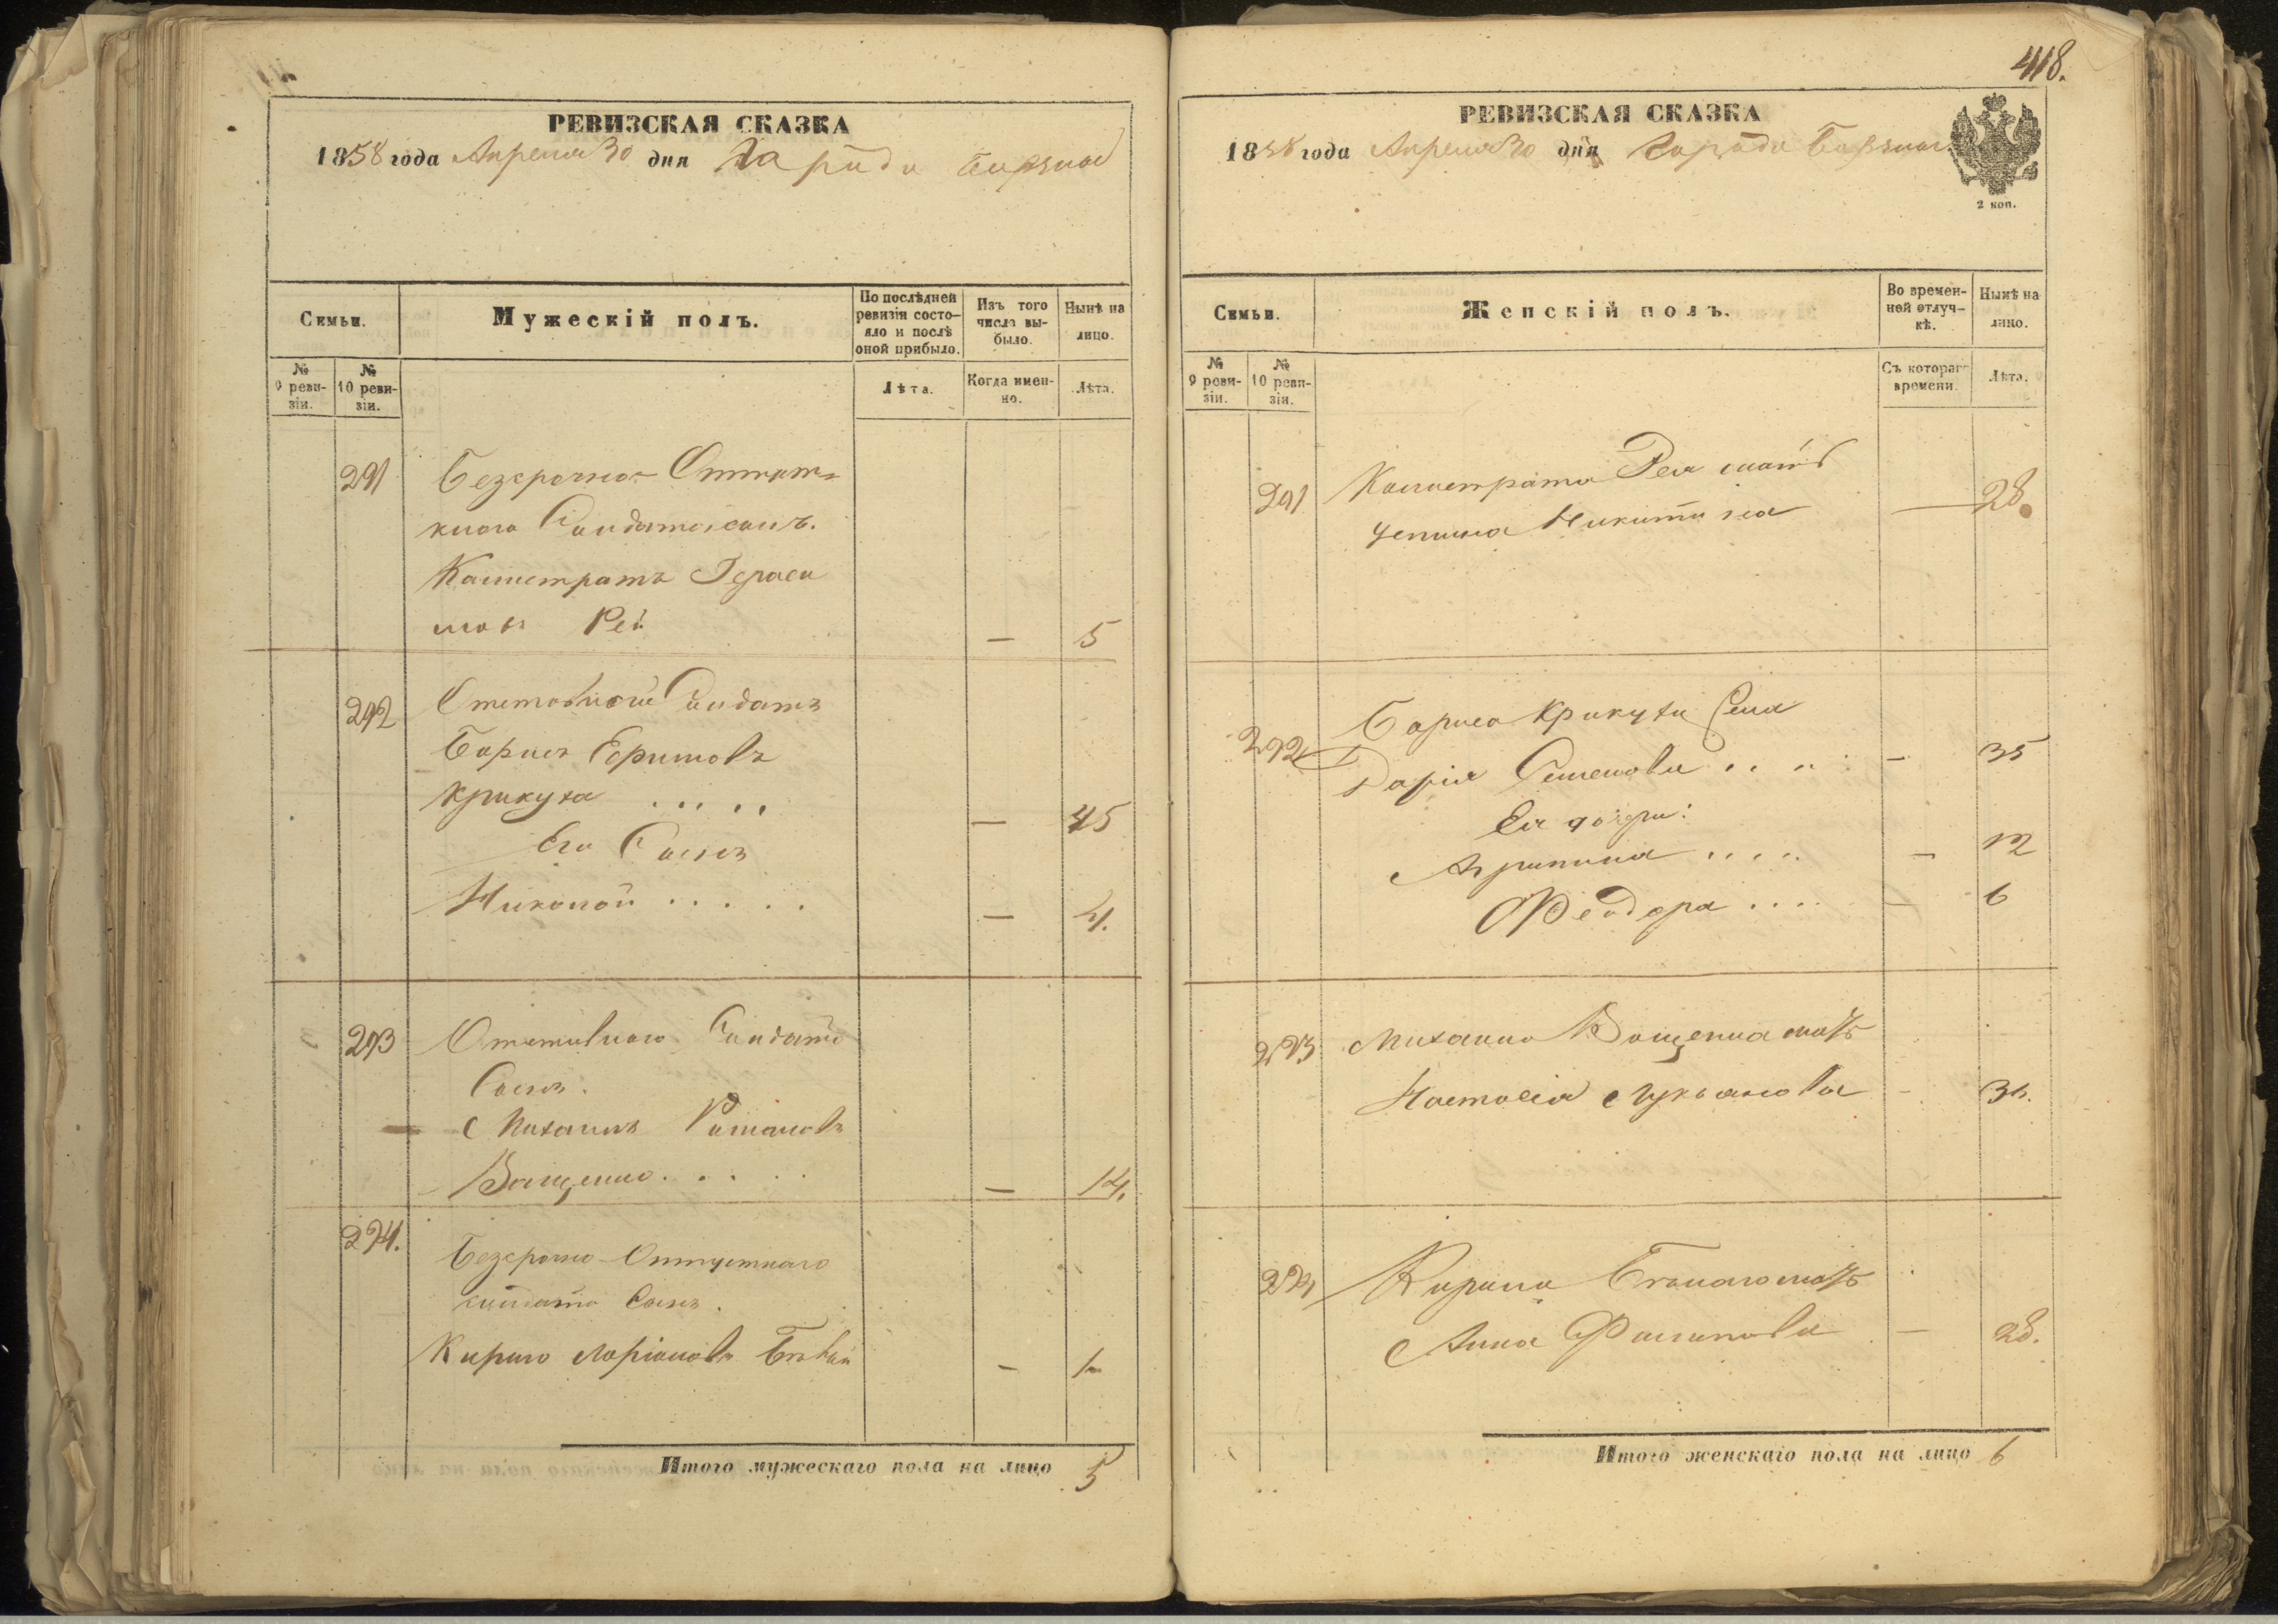 РЕВИЗСКАЯ СКАЗКА
1858 года Апреля 30 дня Города Борзны
Семьи.
Мужескій полъ.
По послѣдней ревизіи состояло и послѣ оной прибыло.
Изъ того числа выбыло.
Нынѣ на лицо.
№ 9 ревизіи.
№ 10 ревизіи.
Лѣта.
Когда именно.
Лѣта.
291
Безсрочно-Отпуск-
кного Солдата сынъ.
Калистратъ Гераси
мовъ Рей
— 5
292
Отставной Солдатъ
Борисъ Ефимовъ
Крикуха . . . . .
— 45
Его Сынъ
Николай . . . . .
— 4.
293
Отставного Солдата
Сынъ.
Михаилъ Романовъ
Ващенко . . . .
— 14.
294.
Безсрочно-Отпустнаго
солдата Сынъ.
Кирило Ларіоновъ
— 1
Итого мужескаго пола на лицо 5
418.
РЕВИЗСКАЯ СКАЗКА
1858 года Апреля 30 дня Города Борзны
2 коп.
Семьи.
Женскій полъ.
Во временной отлучкѣ.
Нынѣ на лицо.
№ 9 ревизіи.
№ 10 ревизіи.
Съ котораго времени.
Лѣта.
291
Калистрата Рея мать
Никитина
— 28.
292
Бориса Крикухи
Дарія Семенова . . . .
— 35
Ея дочери:
Агрипина . . . .
— 12
Феодора . . . .
— 6
293
Михаила Ващенка мать
Настасія Лукьянова
— 36.
294
Кирила Белаго мать
Анна Филипова
— 28.
Итого женскаго пола на лицо 6